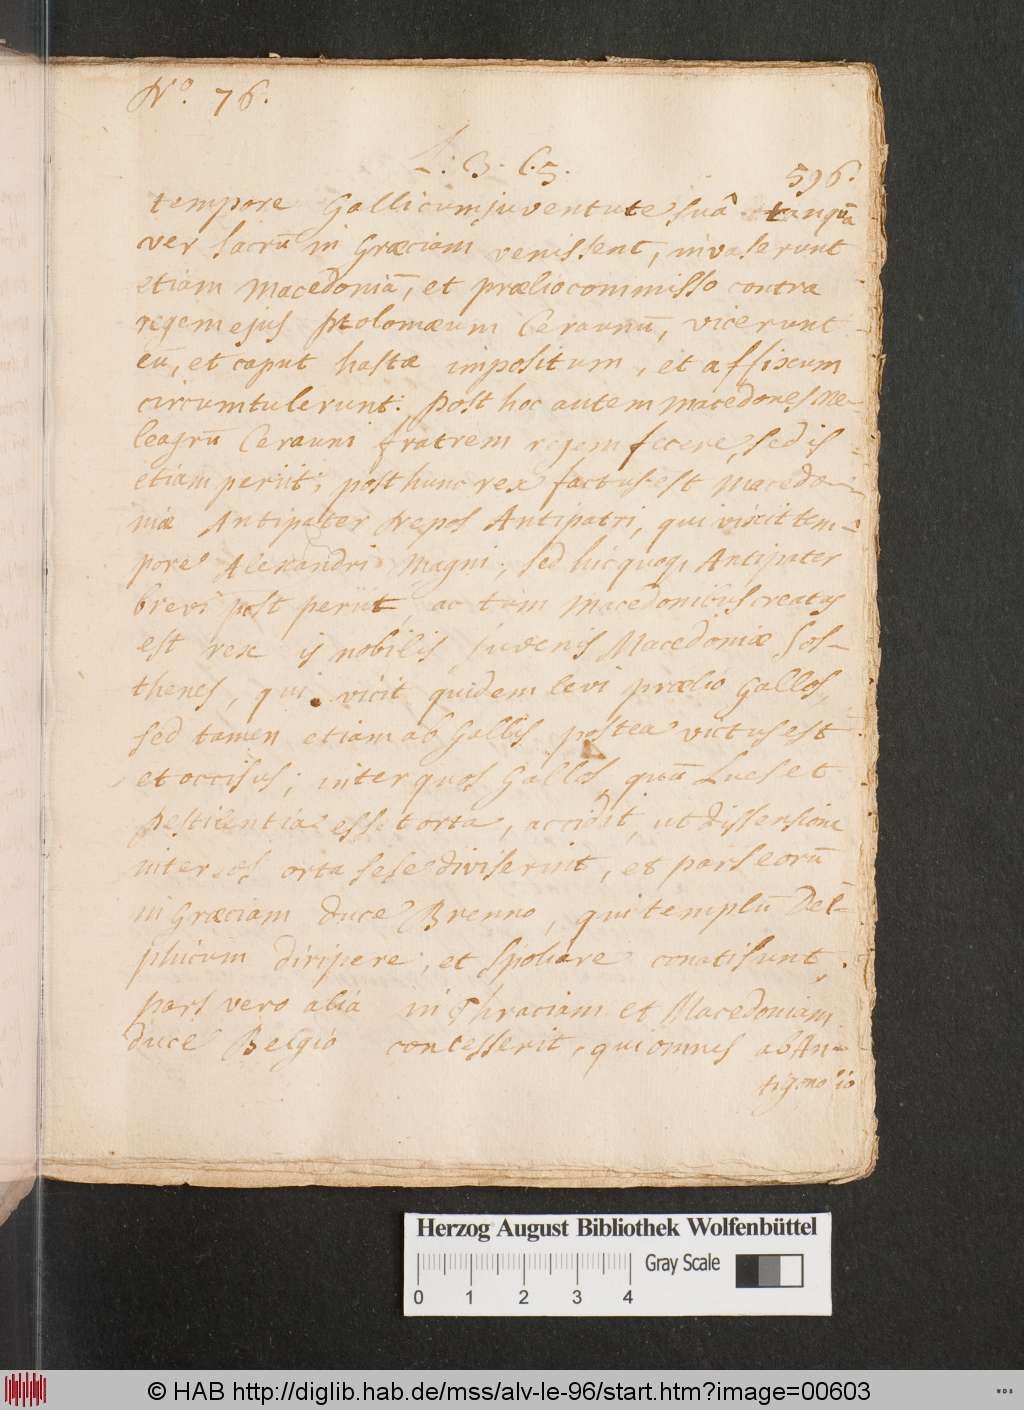 No. 76.
L: 3. C. 5.
596.
tempore Gallicum juventute suâ tanquā
ver sacrū in Græciam venissent, invaserunt
etiam Macedoniā, et prælio commisso contra
regem ejus Ptolomæum Ceraunū, vicerunt
eū, et caput hastæ impositum, et affixum
circumtulerunt. post hoc autem Macedones Me-
leagrū Cerauni fratrem regem fecere, sed is
etiam periit; post hunc rex factus est Macedo-
niæ Antipater Nepos Antipatri, qui vixit tem-
pore Alexandri Magni, sed hic quoq, Antipater
brevi post periit, ac tum Macedonicus creatus
est rex is nobilis juvenis Macedoniæ Sos-
thenes, qui vicit quidem levi prælio Gallos,
sed tamen etiam ab Gallis postea victus est
et occisus; inter quos Gallos quū Lues et
pestilentia esset orta, accidit, ut dissensione
inter eos orta sese diviserint, et pars eorū
in Græciam duce Brenno, qui templū Del-
phicum diripere, et spoliare conati sunt,
pars vero alia in Thraciam et Macedoniam
duce Belgio concesserit, qui omnes ab An-
tigono
Herzog August Bibliothek Wolfenbüttel
Gray Scale
0 1 2 3 4
© HAB http://diglib.hab.de/mss/alv-le-96/start.htm?image=00603